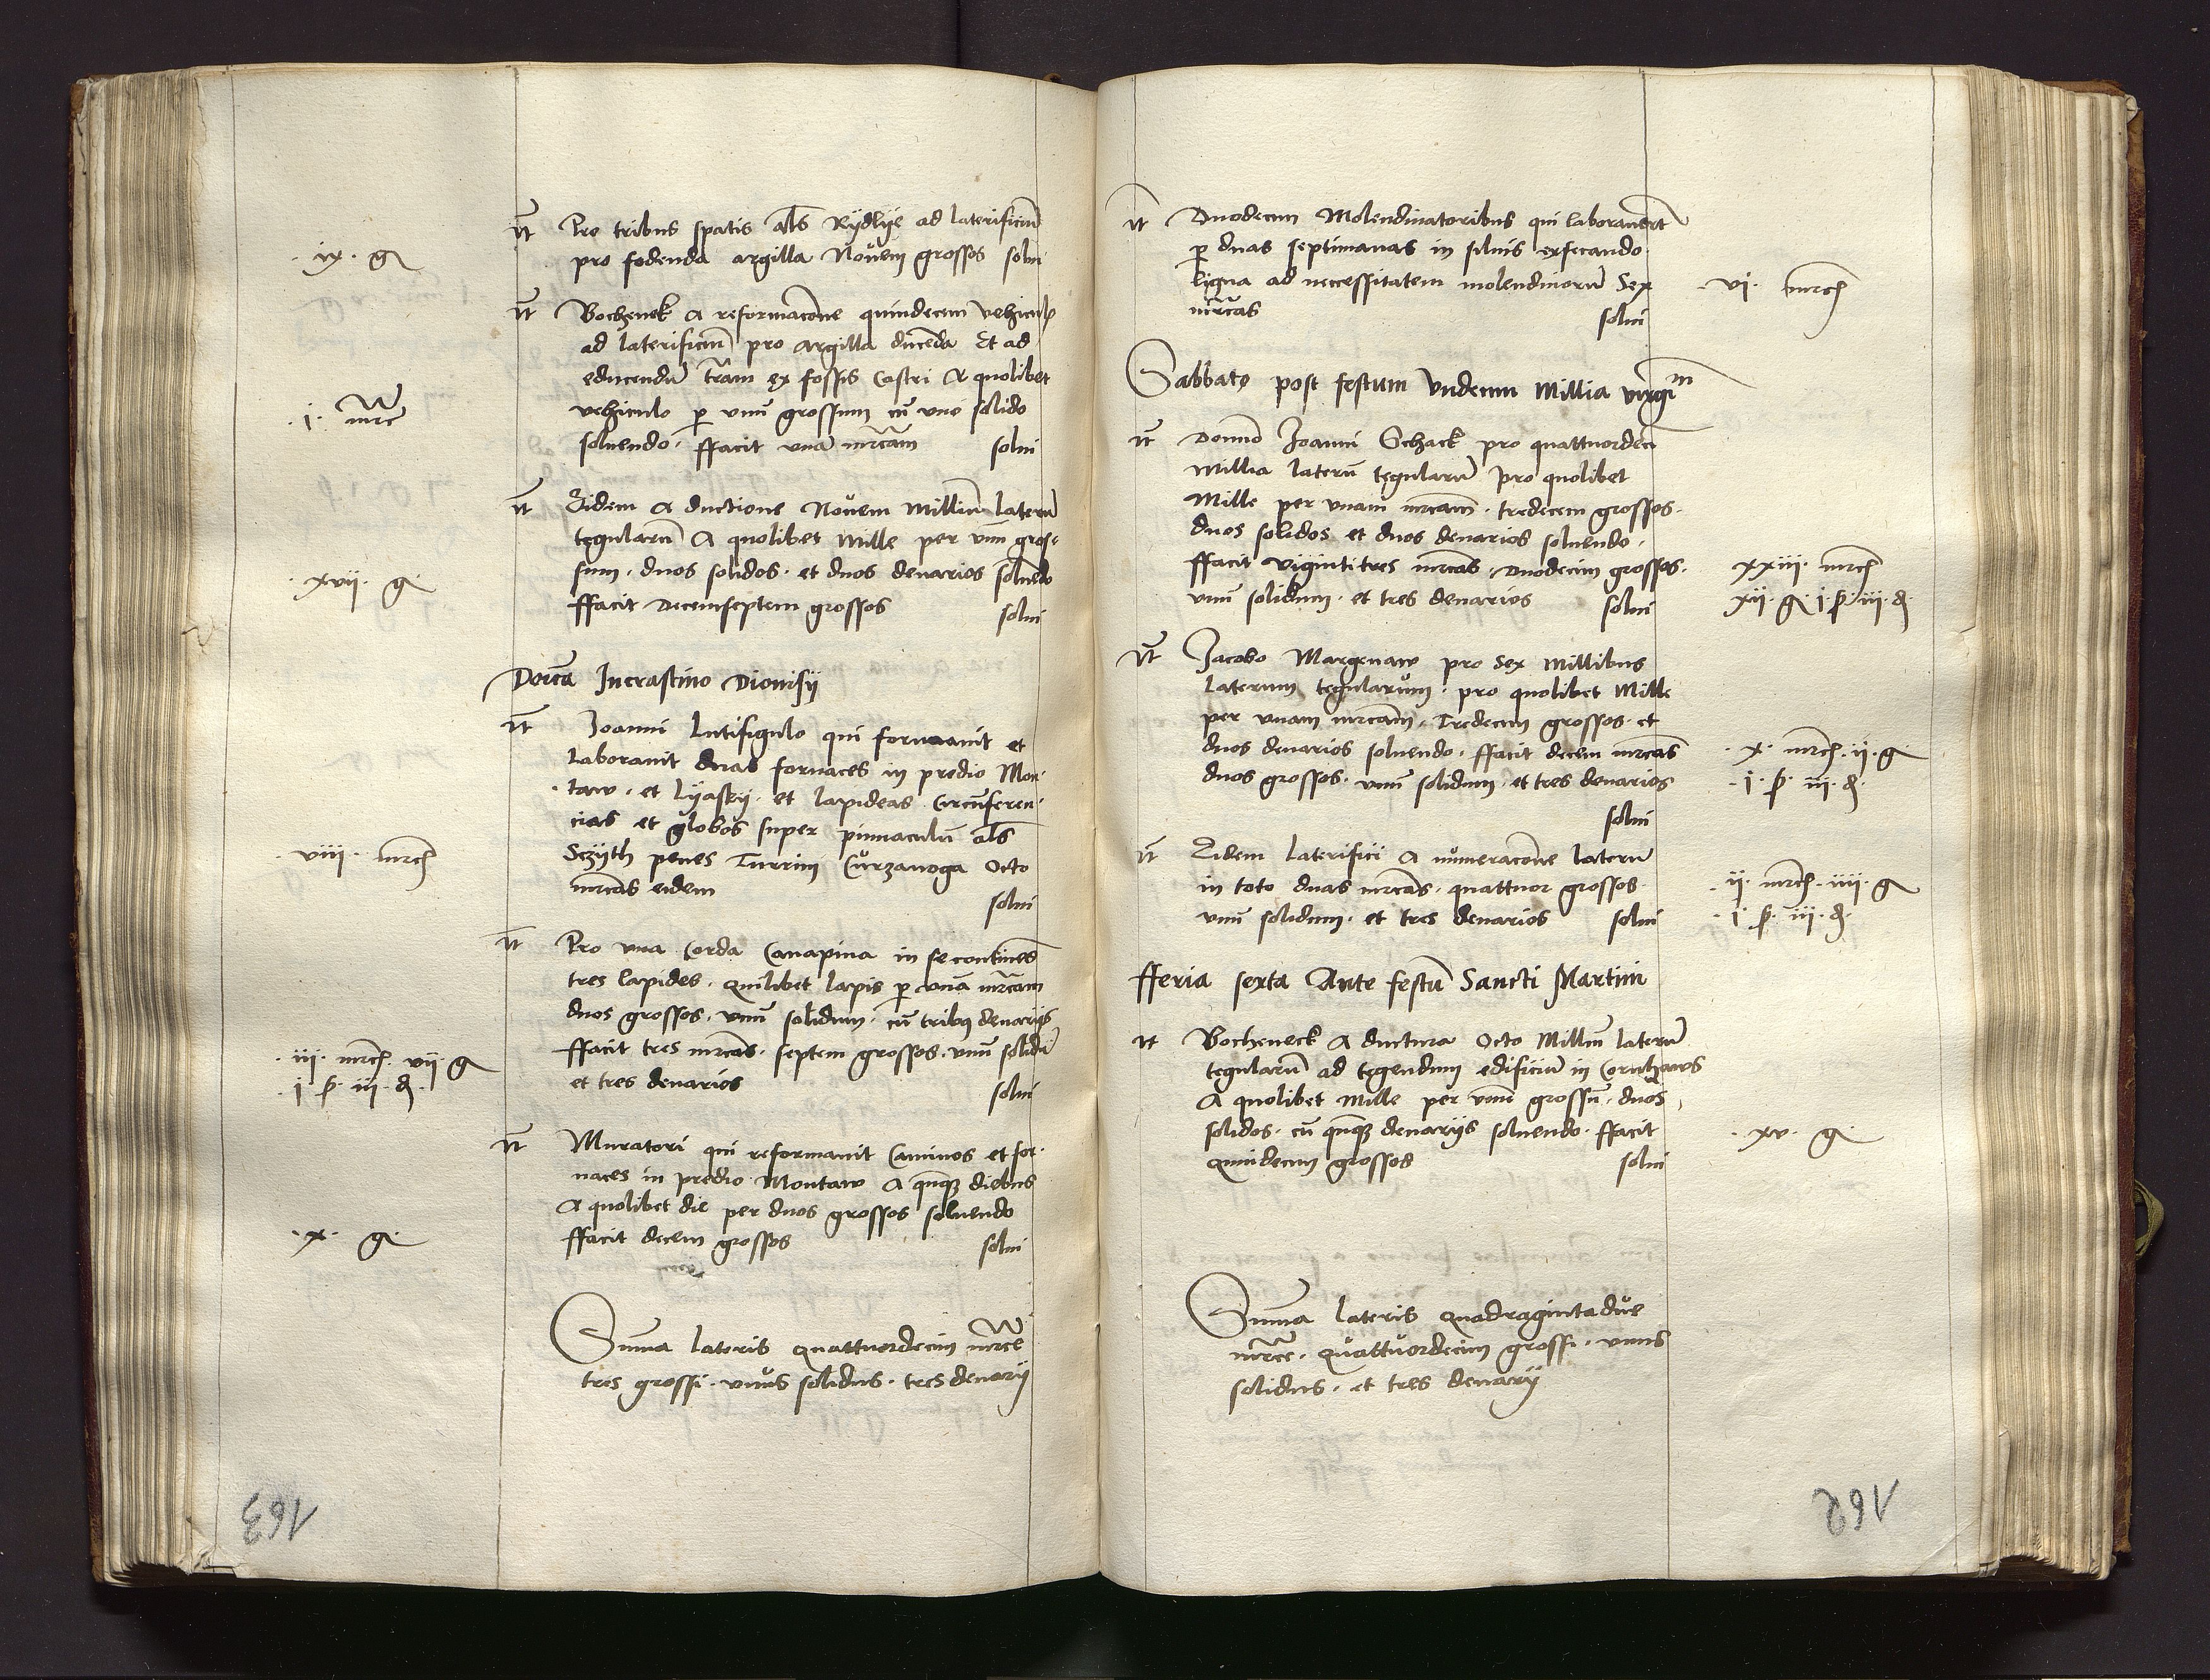 Itē Pro tribus spatis als Rydlÿe ad laterificiū
· ix · g pro fodenda argilla Noůem grossos solui
Itē Bochenek A reformacōne quindecim vehicul
ad laterificiū pro argilla ducēda Et ad
educendū trām ex fossis Castri A quolibet
· j · mrc vehiculo ꝑ vnū grossum cū vno solido
soluendo · ffacit vnā mrcam solui
Itē Eidem A ductione Noůem Milliū laterū
tęgularū A quolibet Mille per vnū gros-
sum · duos solidos · et duos denarios soluēdo
· xvij · g · ffacit Decemseptem grossos solui
Incrastino Dionisÿ
Itē Joanni Lutifigulo qui formauit et
Laborauit duas fornaces in predio Mon-
taw · et Lÿasky · et lapideas Circūferen-
cias et globos super pinnaculū als
· viij · mrc Sczÿth penes Turrim Cůrzanoga Octo
mrcas eidem solui
Itē Pro vna Corda Canapina in se continēs
tres lapides · quilibet lapis ꝑ vnā mrcam
duos grossos · vnū solidum · cū tribꝫ denariis
· iij · mrc · vij · g ffacit tres mrcas · septem grossos · vnū solidū
· j ꝭ iij · d · et tres denarios solui
Itē Muratori qui reformauit Caminos et for-
naces in predio Montaw A quinqꝫ diebus
A quolibet die per duos grossos soluendo
· x · g · ffacit decem grossos solui
Sum̄a lateris quattuordecim mrce
tres grossi · vnůs solidus · tres denarÿ
163
Itē Duodecim Molendinatoribus qui laborauerūt
ꝑ duas septimanas in siluis exsecando
ligna ad neccessitatem molendinorū Sex · vi · mrc
mrcas solui
Sabbato post festum Vndecim Millia virgim
Itē Domīo Joanni Schack pro quattuordecī
Millia laterū tęgularū pro quolibet
Mille per vnam mrcam · tredecem grossos ·
duos solidos et duos denarios soluendo ·
ffacit Viginti tres mrcas · Duodecim grossos · xxiij · mrc
vnū solidum · et tres denarios solui xij · g j ꝭ iij · d
Itē Jacobo Margenaw pro Sex Millibus
Laterum tęgularům · pro quolibet Mille
per vnam mrcam · Tredecim grossos · et
duos denarios soluendo · ffacit decem mrcas · x · mrc · ij · g ·
duos grossos · vnū solidum · et tres denarios · j · ꝭ iij · d ·
solui
Itē Eidem laterifici A nůmeracōne laterū
in toto duas mrcas · quattuor grossos · · ij · mrc · iiij · g
vnū solidum · et tres denarios solui · j ꝭ · iij · d ·
fferia sexta Ante festū Sancti Martini
Itē Bocheneck A ductura Octo Milliū laterū
tęgularū ad tęgendum edificiū in Cornhaws
A quolibet Mille per vnū grossū · duos
solidos · cū quinqꝫ denarÿs soluendo · ffacit · xv · g ·
Quindecim grossos solui
Sum̄a lateris quadragintadůe
mrce · quattůordecim grossi · vnus
solidus · et tres denarÿ
162